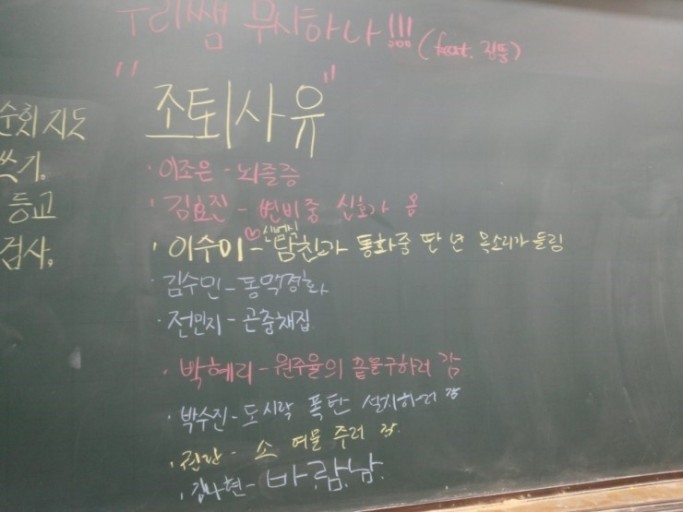 우리쌤 무시하나!!! (feat. 진통)
" 조퇴사유 "
· 이조은 - 뇌졸증
· 김효진 - 변비중 신호가 옴
· 이수이 - ♡ 남친과 통화중 딴 년 목소리가 들림
· 김수민 - 동맥경화
· 전민지 - 곤충채집
· 박혜리 - 원주율의 끝물구하러 감
· 박수진 - 도시락 폭탄 설치하러 감
· 소 여물 주러 감
· 김나현 - 바람남.
순회지도
쓰기.
등교
검사.